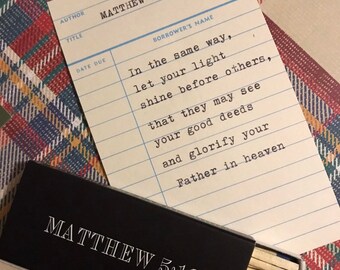 AUTHOR MATTHEW
TITLE
BORROWER'S NAME
DATE DUE
In the same way,
let your light
shine before others,
that they may see
your good deeds
and glorify your
Father in heaven
MATTHEW